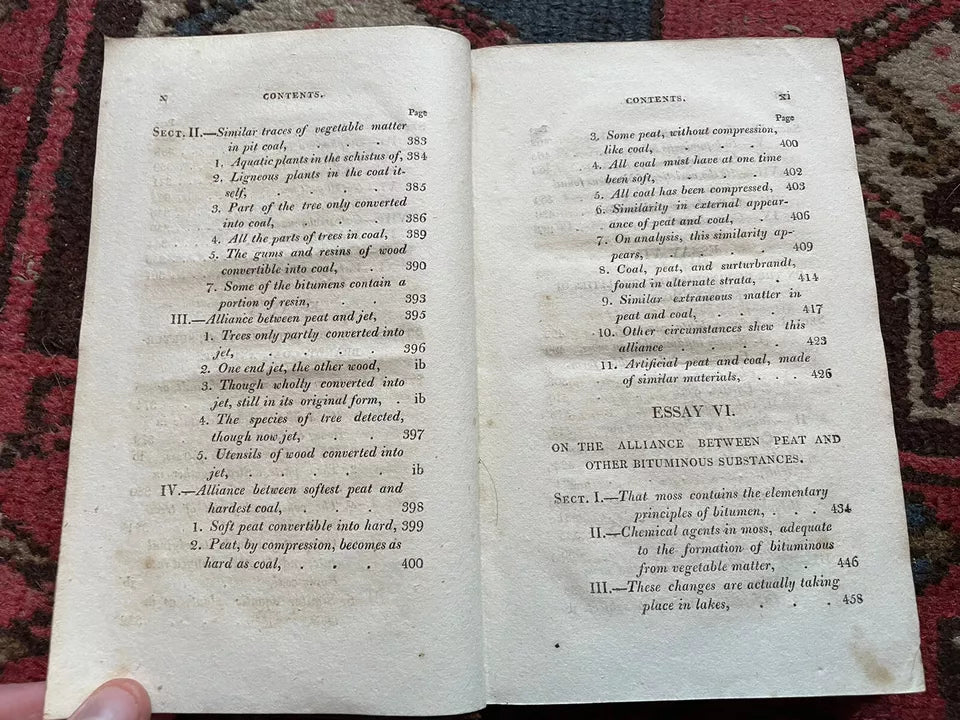 x
CONTENTS.
Page
SECT. II.—Similar traces of vegetable matter
in pit coal, . . . . 383
1. Aquatic plants in the schistus of, 384
2. Ligneous plants in the coal it-
self, . . . . . 385
3. Part of the tree only converted
into coal, . . . . 386
4. All the parts of trees in coal, 389
5. The gums and resins of wood
convertible into coal, . . 390
7. Some of the bitumens contain a
portion of resin, . . . 393
III.—Alliance between peat and jet, 395
1. Trees only partly converted into
jet, . . . . . 396
2. One end jet, the other wood, ib
3. Though wholly converted into
jet, still in its original form, . ib
4. The species of tree detected,
though now jet, . . . 397
5. Utensils of wood converted into
jet, . . . . . ib
IV.—Alliance between softest peat and
hardest coal, . . . 398
1. Soft peat convertible into hard, 399
2. Peat, by compression, becomes as
hard as coal, . . . 400
CONTENTS.
xi
Page
3. Some peat, without compression,
like coal, . . . . 400
4. All coal must have at one time
been soft, . . . . 402
5. All coal has been compressed, 403
6. Similarity in external appear-
ance of peat and coal, . 406
7. On analysis, this similarity ap-
pears, . . . . . 409
8. Coal, peat, and surturbrandt,
found in alternate strata, . 414
9. Similar extraneous matter in
peat and coal, . . . . 417
10. Other circumstances shew this
alliance . . . . . 423
11. Artificial peat and coal, made
of similar materials, . . . 426
ESSAY VI.
ON THE ALLIANCE BETWEEN PEAT AND
OTHER BITUMINOUS SUBSTANCES.
SECT. I.—That moss contains the elementary
principles of bitumen, . . . 434
II.—Chemical agents in moss, adequate
to the formation of bituminous
from vegetable matter, . 446
III.—These changes are actually taking
place in lakes, . . . 458